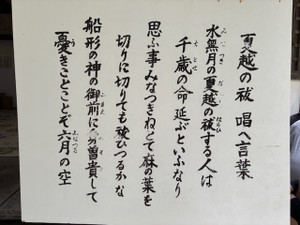 夏越の祓 唱へ言葉
水無月の夏越の祓する人は
千歳の命延ぶといふなり
思ふ事みなつきねとて麻の葉を
切りに切りても祓ひつるかな
船形の神の御前に曽貴して
憂きことことぞ六月の空